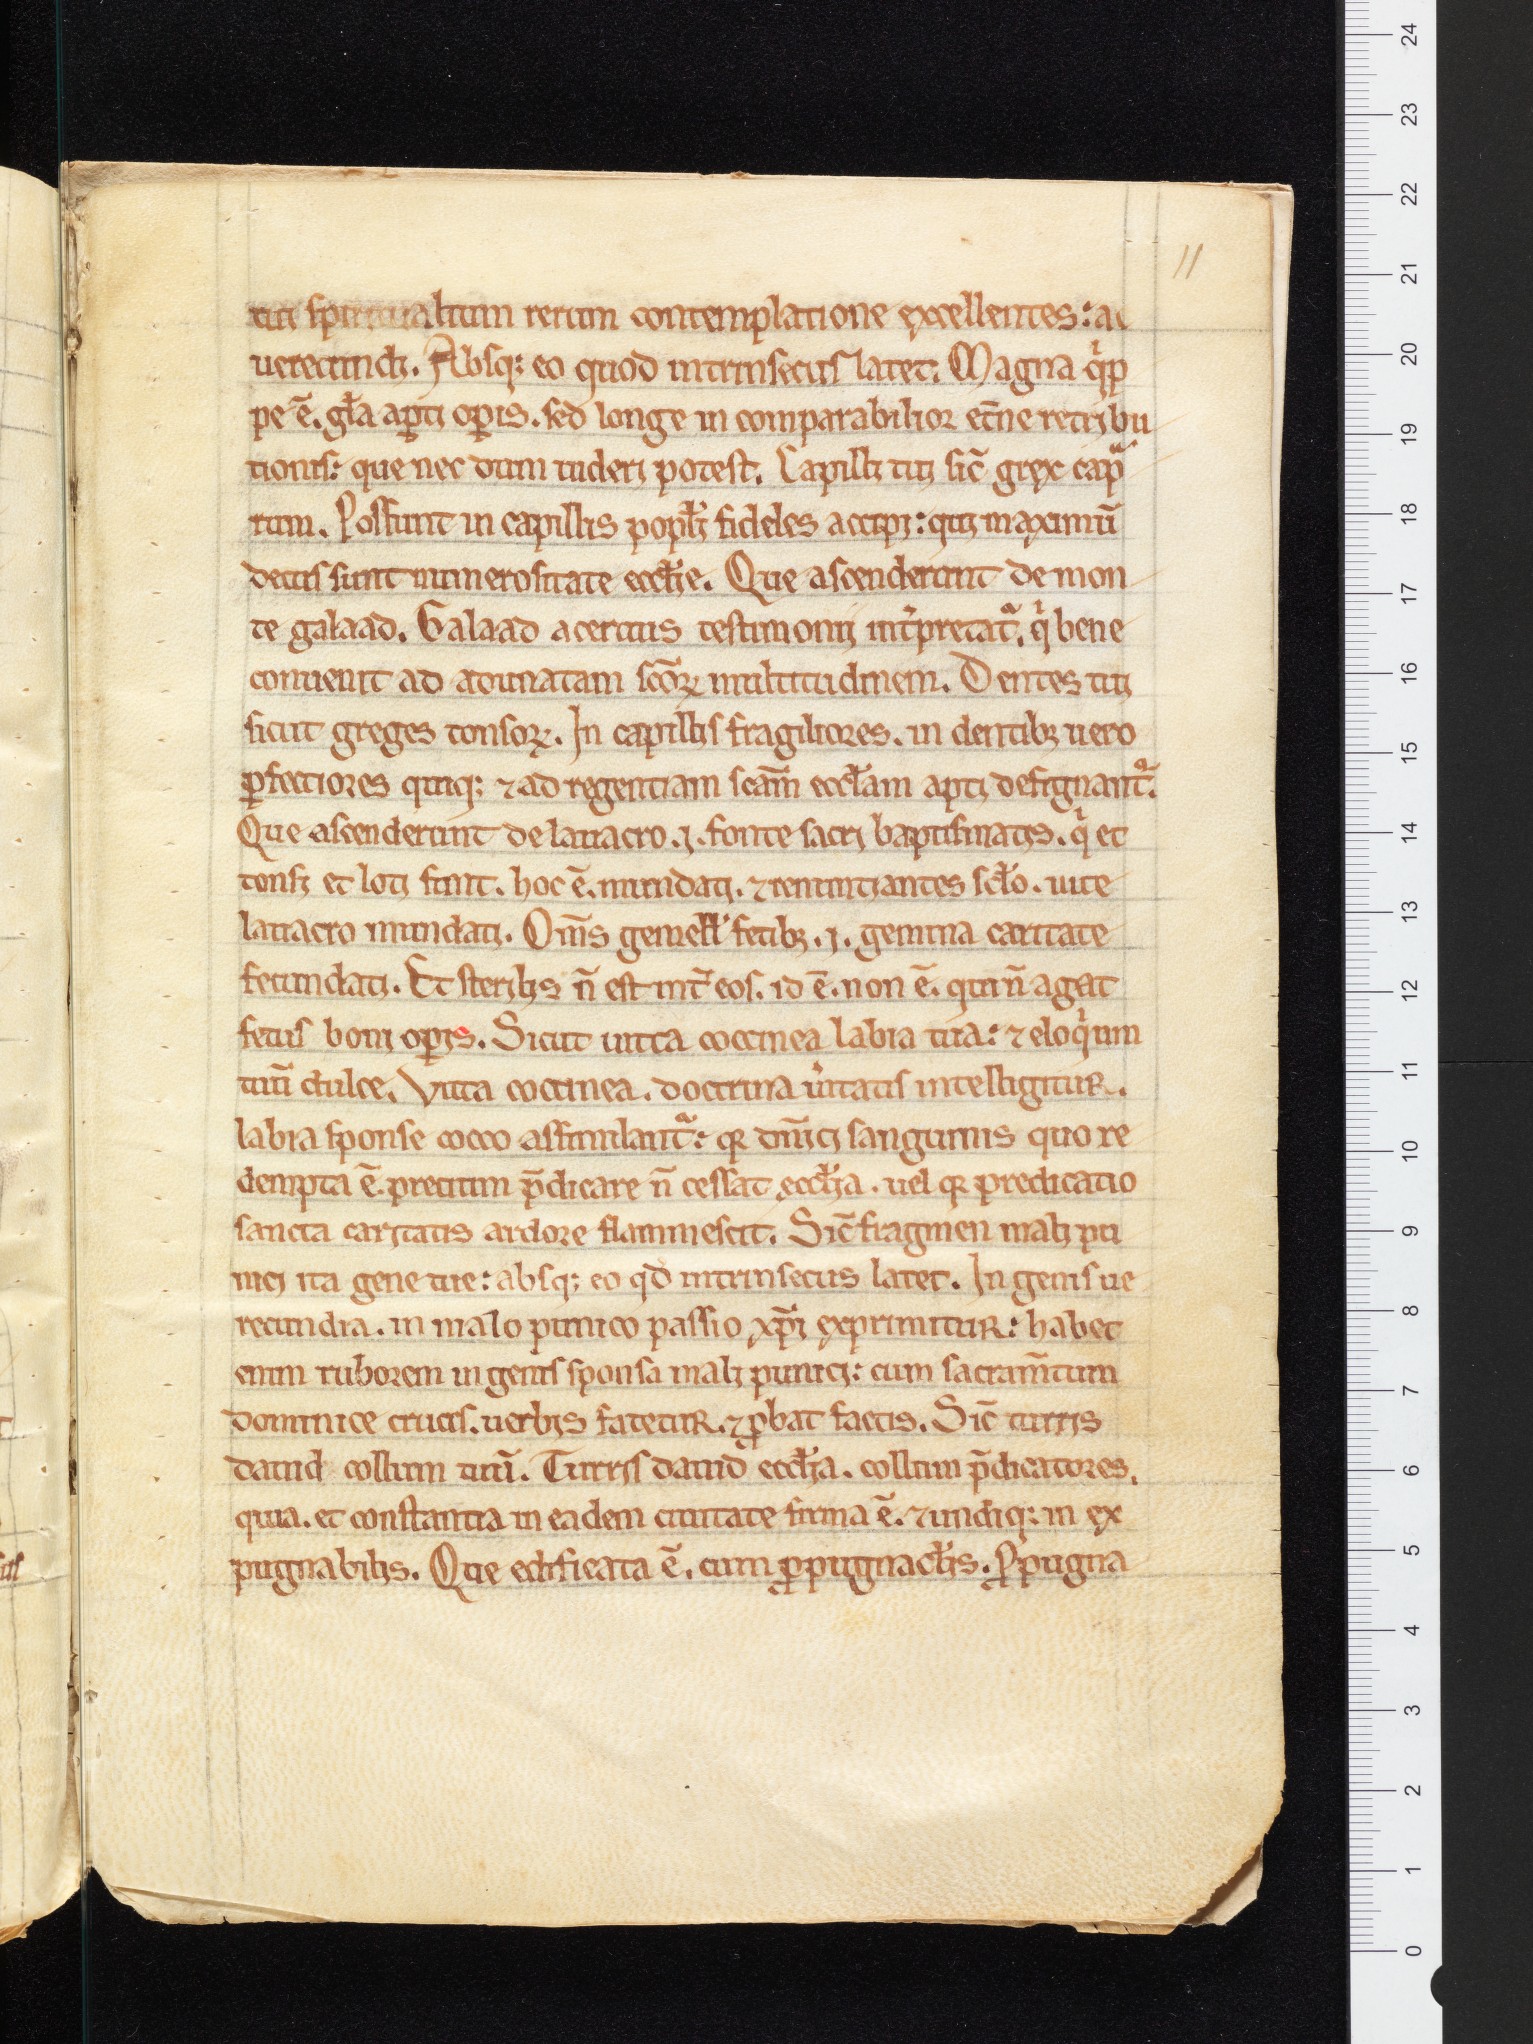 11
tui spiritualium rerum contemplatione excellentes: ac
uerecundi. Absq; eo quod intrinsecus latet. Magna qͥp
pe ē. gła apti opis. sed longe in comparabilior et̄ne retribu
tionis: que nec dum uideri potest. Capilli tui sic̄ grex capᵃ
rum. Possunt in capillis popłi fideles accipi: qui maximū
decus sunt numerositate eccłie. Que ascenderunt de mon
te galaad. Galaad aceruus testimonii int̉pretat᷑. qͥ bene
conuenit ad adunatam sc̄oꝝ multitudinem. Dentes tui
sicut greges tonsoꝝ. In capillis fragiliores. in dentibꝫ uero
ꝑfectiores quiq; ⁊ ad regentiam scām eccłam apti designant᷑.
Que ascenderunt de lauacro .i. fonte sacri baptismatis. qͥ et
tonsi et loti sunt. hoc ē. mundati. ⁊ renuntiantes scło. uite
lauacro mundati. Om̄s gemelł fetibꝫ .i. gemina caritate
fecundati. Et sterilis n̄ est int̉ eos. id ē. non ē. qui n̄ agat
fetus boni opis. Sicut uitta coccinea labia tua: ⁊ eloqͥum
tuū dulce. Vitta coccinea. doctrina ũitatis intelligitur.
labia sponse cocco assimilant᷑: qꝛ dn̄ici sanguinis quo re
dempta ē. precium p̄dicare n̄ cessat eccłia. uel qꝛ predicatio
sancta caritatis ardore flammescit. Sic̄ fragmen mali pu
nici ita gene tue: absq; eo qd̄ intrinsecus latet. In genis ue
recundia. in malo punico passio xp̄i exprimitur: habet
enim ruborem in genis sponsa mali punici: cum sacram̄tum
dominice crucis. uerbis fatetur. ⁊ ꝓbat factis. Sic̄ turris
dauid collum tuū. Turris dauid eccłia. collum p̄dicatores.
quia. et constantia in eadem ciuitate firma ē. ⁊ undiq; in ex
pugnabilis. Que edificata ē. cum ꝓpugnacłis. Ꝓpugna